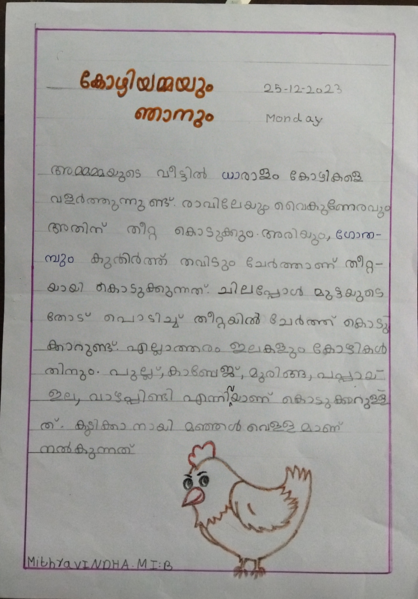 കോഴിയമ്മയും
ഞാനും
25-12-2023
Monday
അമ്മമ്മയുടെ വീട്ടിൽ ധാരാളം കോഴികളെ
വളർത്തുന്നുണ്ട്. രാവിലേയും വൈകുന്നേരവും
അതിന് തീറ്റ കൊടുക്കും. അരിയും, ഗോത-
മ്പും കുതിർത്ത് തവിടും ചേർത്താണ് തീറ്റ-
യായി കൊടുക്കുന്നത്. ചിലപ്പോൾ മുട്ടയുടെ
തോട് പൊടിച്ച് തീറ്റയിൽ ചേർത്ത് കൊടു
ക്കാറുണ്ട്. എല്ലാത്തരം ഇലകളും കോഴികൾ
തിന്നും. പുല്ല്, കാബേജ്, മുരിങ്ങ, പപ്പായ
ഇല, വാഴപ്പിണ്ടി എന്നിയാണ് കൊടുക്കാറുള്ള
ത്. കുടിക്കാനായി മഞ്ഞൾ വെള്ളമാണ്
നൽകുന്നത്.
MithraVINDHA.M I:B